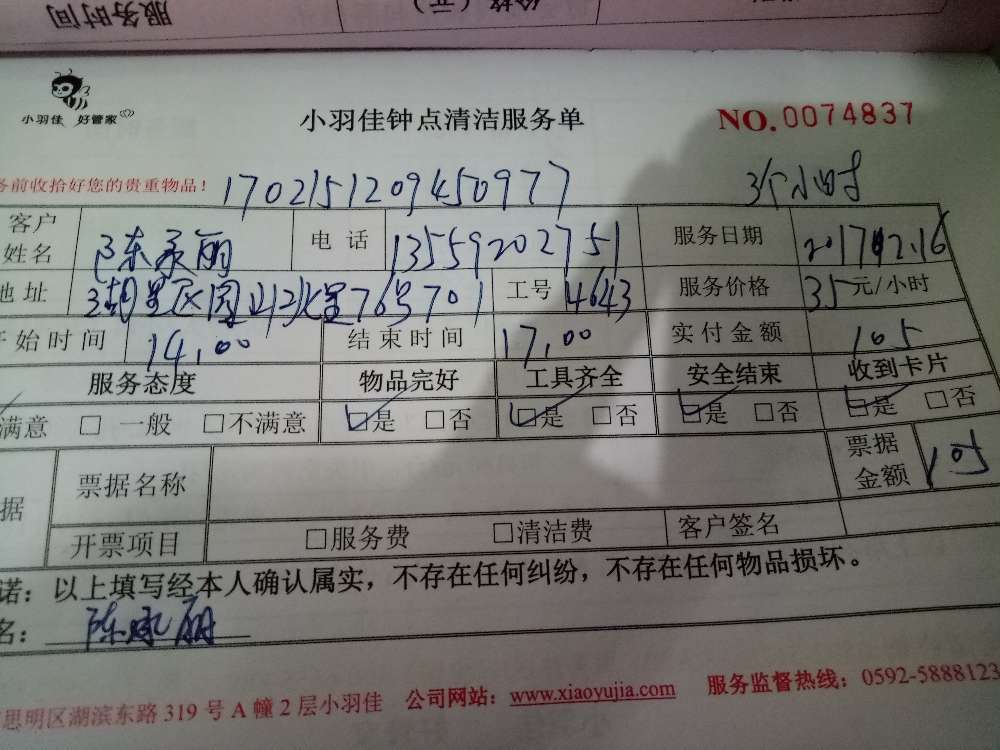 服务时间 价格（元）
小羽佳 好管家
小羽佳钟点清洁服务单 NO.0074837
务前收拾好您的贵重物品！ 1702151209450977 3个小时
客户姓名 陈 丽 电 话 13559202751 服务日期 2017 02.16
地 址 湖里区园山北里76号701 工号 4643 服务价格 35 元/小时
开始时间 14:00 结束时间 17:00 实付金额 105
服务态度 物品完好 工具齐全 安全结束 收到卡片
满意 □ 一般 □不满意 ☑是 □否 ☑是 □否 ☑是 □否 ☑是 □否
据 票据名称 票据金额 105
开票项目 □服务费 □清洁费 客户签名
诺：以上填写经本人确认属实，不存在任何纠纷，不存在任何物品损坏。
名： 陈 丽
思明区湖滨东路 319 号 A 幢 2 层小羽佳 公司网站：www.xiaoyujia.com 服务监督热线：0592-5888123